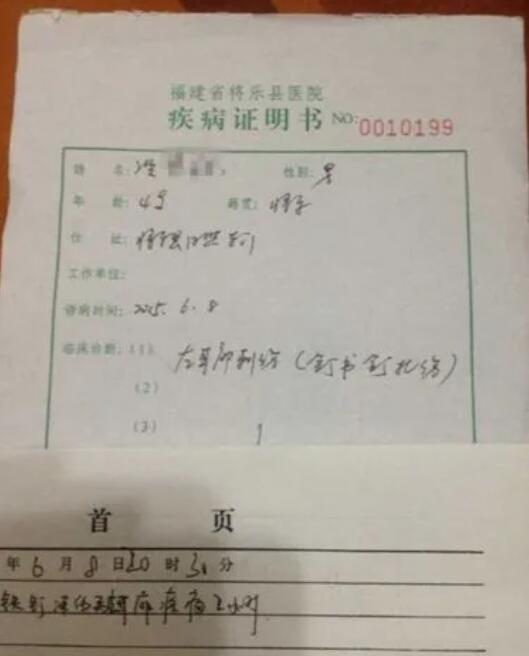 福建省将乐县医院
疾病证明书 NO: 0010199
姓 名: 性别: 男
年 龄: 4岁 籍贯: 将乐
住 址: 将乐县
工作单位:
诊病时间: 2015. 6. 8
临床诊断: (1) 左耳部刺伤 (钉书钉扎伤)
(2)
(3)
首 页
年 6 月 8 日 20 时 30 分
疼痛 2小时